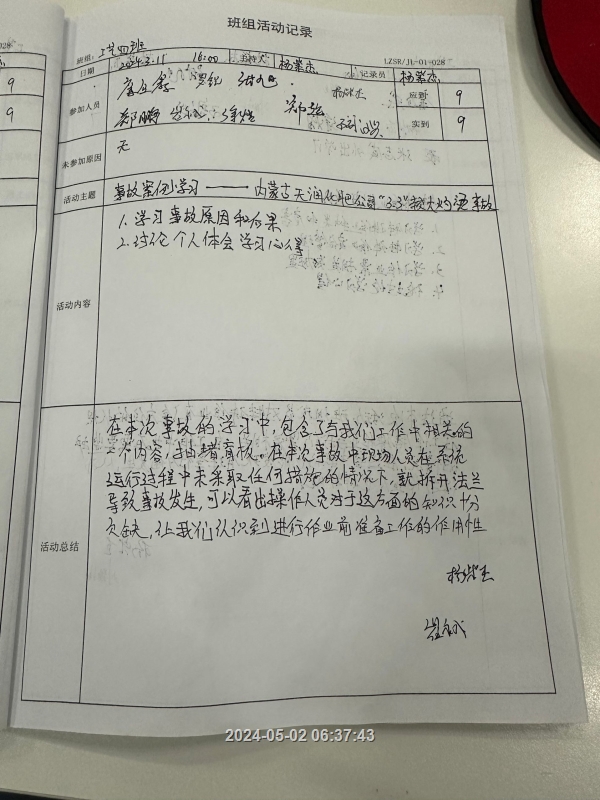 班组活动记录
班组：工艺四班
LZSR/JL-01-028
日期 2024.3.11 16:00 主持人 杨紫杰 记录员 杨紫杰
参加人员
应到 9
实到 9
未参加原因 无
活动主题 事故案例学习——内蒙古天润化肥公司"3.3"较大灼烫事故
活动内容
1. 学习事故原因和后果
2. 讨论个人体会学习心得
活动总结
在本次事故的学习中，包含了与我们工作中相关的
一个内容，抽堵盲板。在本次事故中现场人员在系统
运行过程中未采取任何措施的情况下，就拆开法兰
导致事故发生，可以看出操作人员对于这方面的知识十分
欠缺，让我们认识到进行作业前准备工作的作用性
2024-05-02 06:37:43